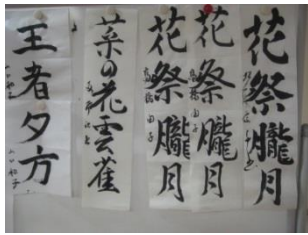 花祭朧月
花祭朧月
花祭朧月
菜の花雲雀
王者夕方